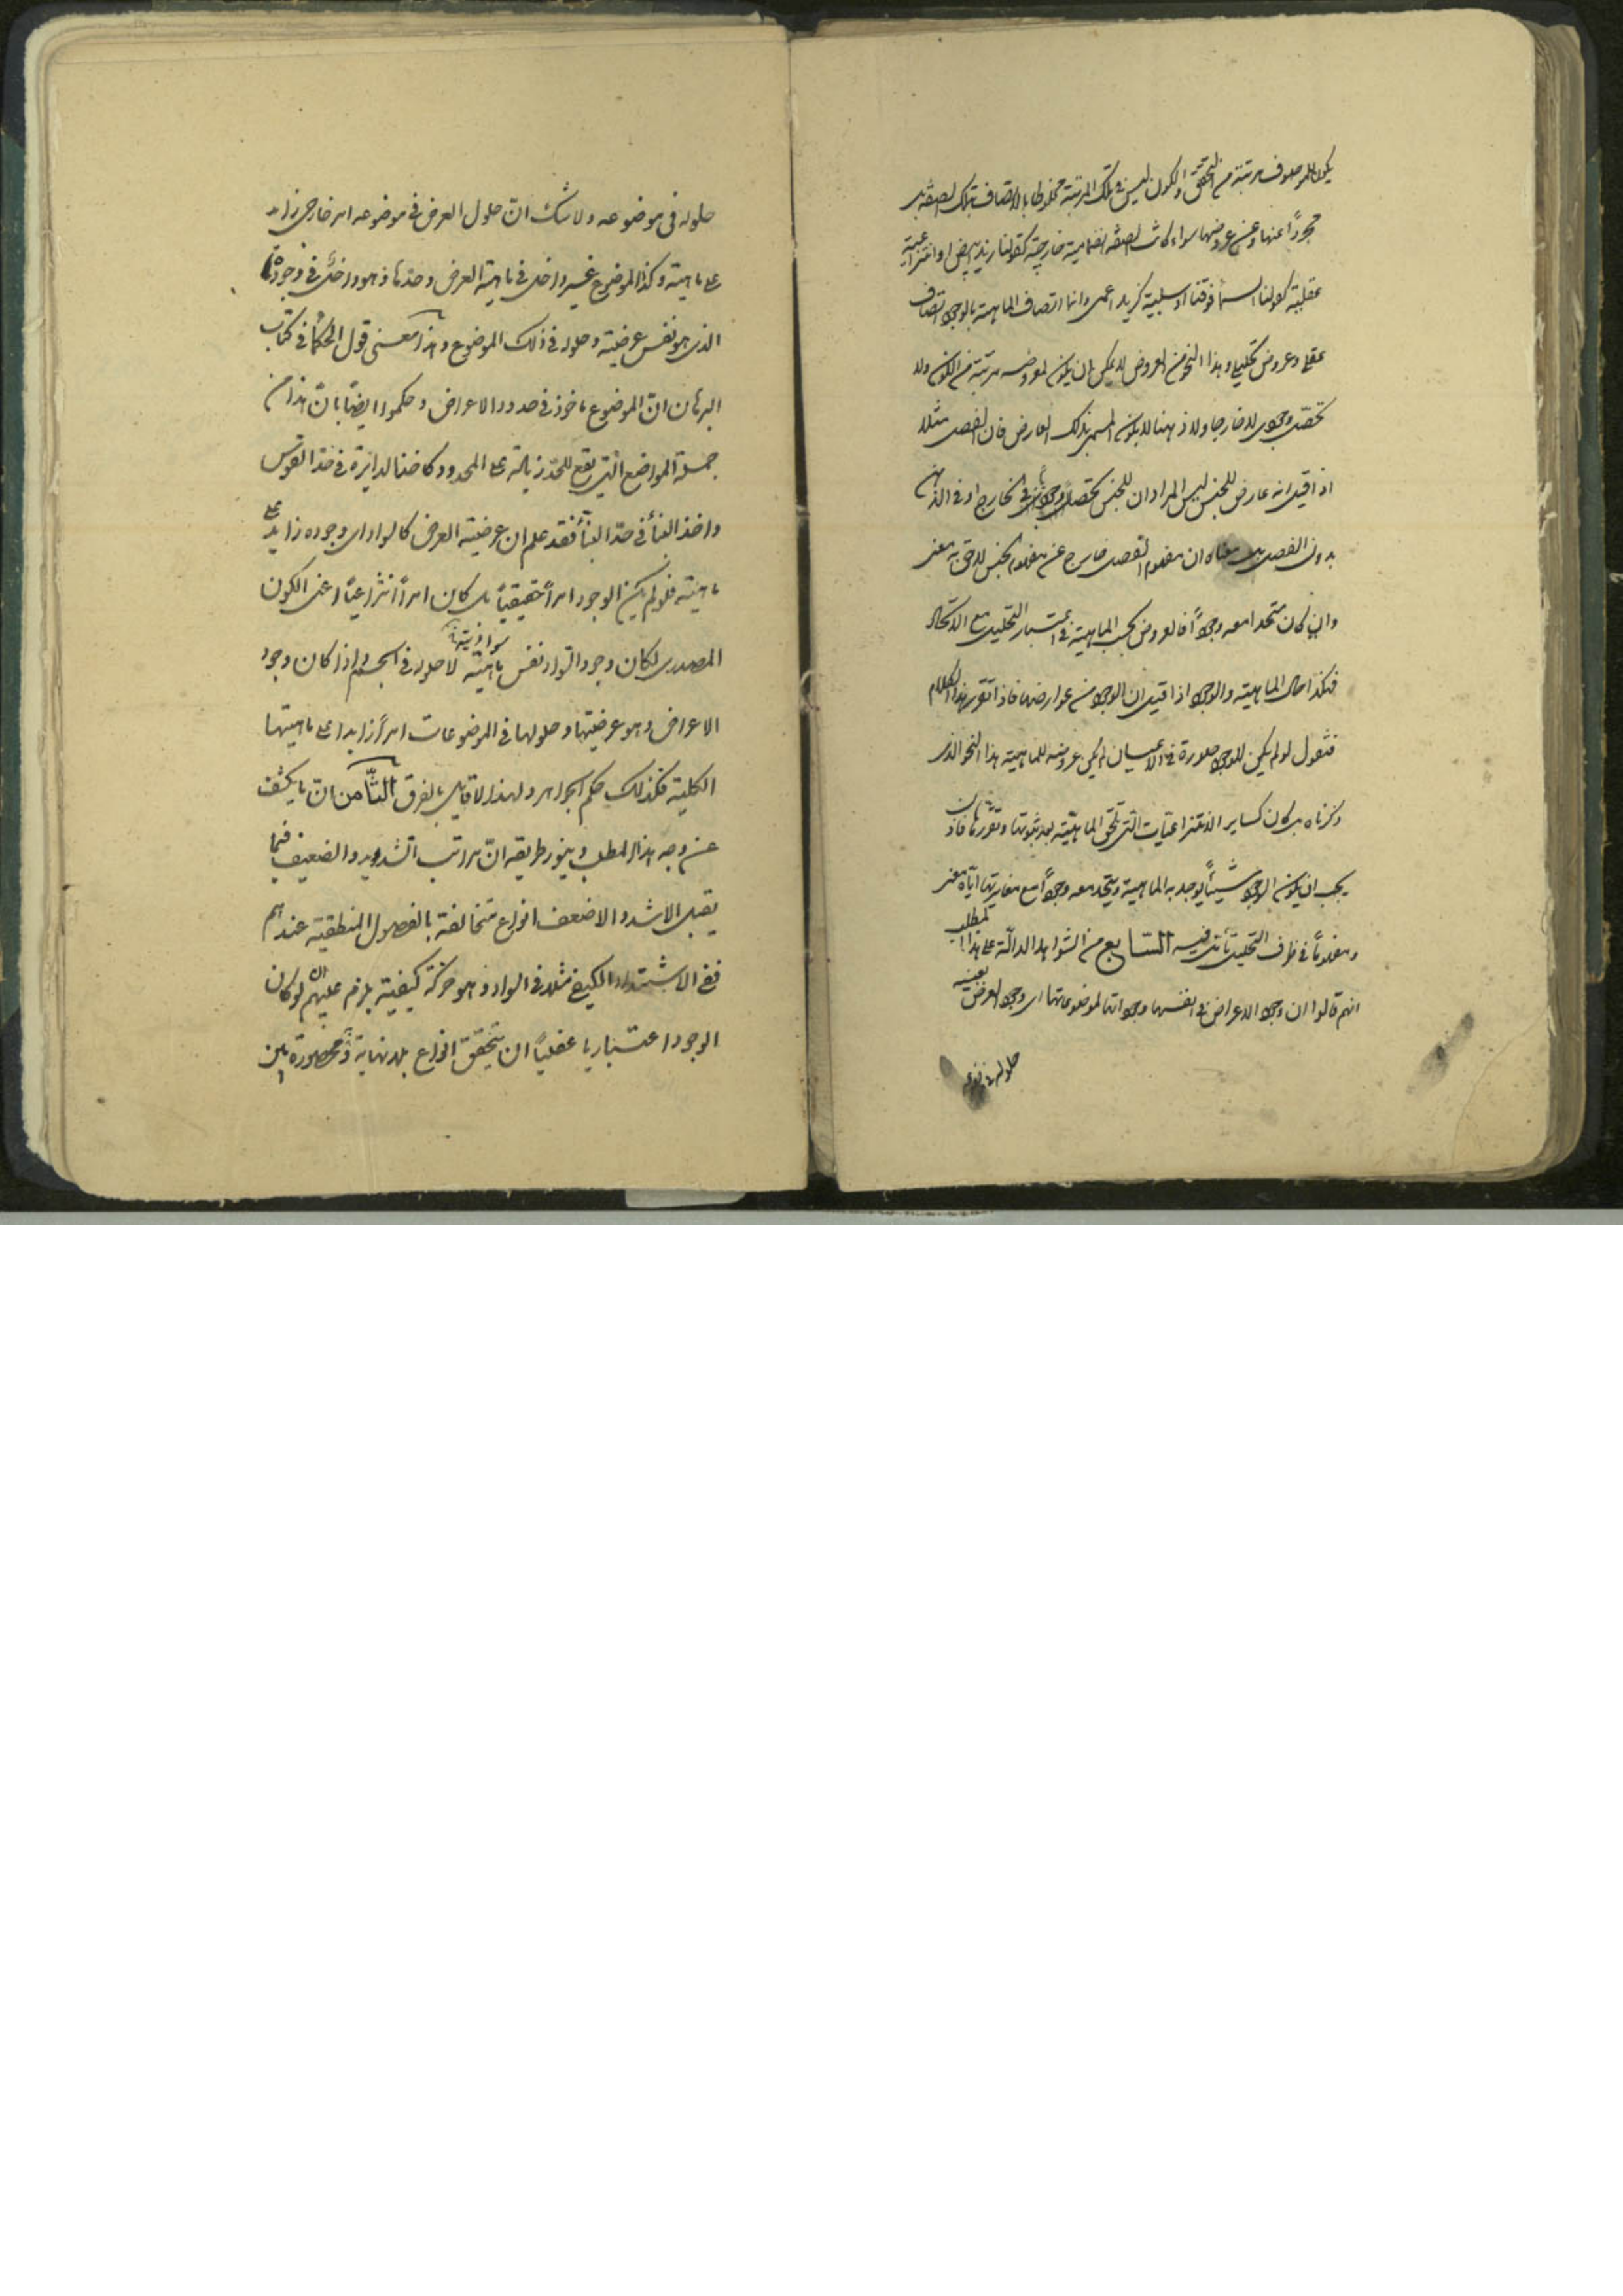 يكون للموصوف مرتبة من التحقق والكون ليس في تلك المرتبة مخلوطا بالاتصاف بتلك الصفة بل
مجردا عنها وعن عروضها سواء كانت الصفة انضمامية خارجية كقولنا زيد ابيض او انتزاعية
عقلية كقولنا السماء فوقنا او سلبية كزيد اعمى وانما اتصاف الماهية بالوجود اتصاف
عقلي وعروض تحليلي وهذا النحو من العروض لا يمكن ان يكون لمعروضه مرتبة من الكون ولا
تحصل وجودي لا خارجا ولا ذهنا لا يكون المسمى بذلك العارض فان الفصل مثلا
اذا قيل انه عارض للجنس ليس المراد ان للجنس تحصلا وجوديا في الخارج او في الذهن
بدون الفصل بل معناه ان مفهوم الفصل خارج عن مفهوم الجنس لاحق به معنى
وان كان متحدا معه وجودا فالعروض بحسب الماهية في اعتبار التحليل مع الاتحاد
فهكذا حال الماهية والوجود اذا قيل ان الوجود من عوارضها فاذا تقرر هذا الكلام
فنقول لو لم يكن للوجود صورة في الاعيان لم يكن عروضه للماهية هذا النحو الذي
ذكرناه بل كان كساير الانتزاعيات التي تلحق الماهية بعد ثبوتها وتقررها فاذن
يجب ان يكون الوجود شيئا يوجد به الماهية ويتحد معه وجودا مع مغايرتها اياه معنى
ومفهوما في ظرف التحليل تأمل فيه السابع من الشواهد الدالة على هذا المطلب
انهم قالوا ان وجود الاعراض في انفسها وجوداتها لموضوعاتها اى وجود العرض بعينه
حلوله في موضوعه
حلوله في موضوعه ولا شك ان حلول العرض في موضوعه امر خارجي زايد
على ماهيته وكذا الموضوع غير داخل في ماهية العرض وحدها وهو داخل في وجوده
الذي هو نفس عرضيته وحلوله في ذلك الموضوع وهذا معنى قول الحكماء في كتاب
البرهان ان الموضوع ماخوذ في حدود الاعراض وحكموا ايضا بان هذا من
جملة المواضع التي يقع للحد زيادة على المحدود كاخذ الدايرة في حد القوس
واخذ البناء في حد البناء فقد علم ان عرضية العرض كالسواد اى وجوده زايد على
ماهيته فلو لم يكن الوجود امرا حقيقيا بل كان امرا انتزاعيا اعنى الكون
المصدري لكان وجود السواد نفس ماهيته سواديته لا حلوله في الجسم واذا كان وجود
الاعراض وهو عرضيتها وحلولها في الموضوعات امرا زايدا على ماهيتها
الكلية فكذلك حكم الجواهر ولهذا لا قايل بالفرق الثامن ان ما يكشف
عن وجه هذا المطلب وينور طريقه ان مراتب الشديد والضعيف فيما
يقبل الاشد والاضعف انواع متخالفة بالفصول المنطقية عندهم
ففي الاشتداد الكيفي مثلا في السواد وهو حركة كيفية يلزم عليهم لو كان
الوجود اعتباريا عقليا ان يتحقق انواع بلا نهاية محصورة بين